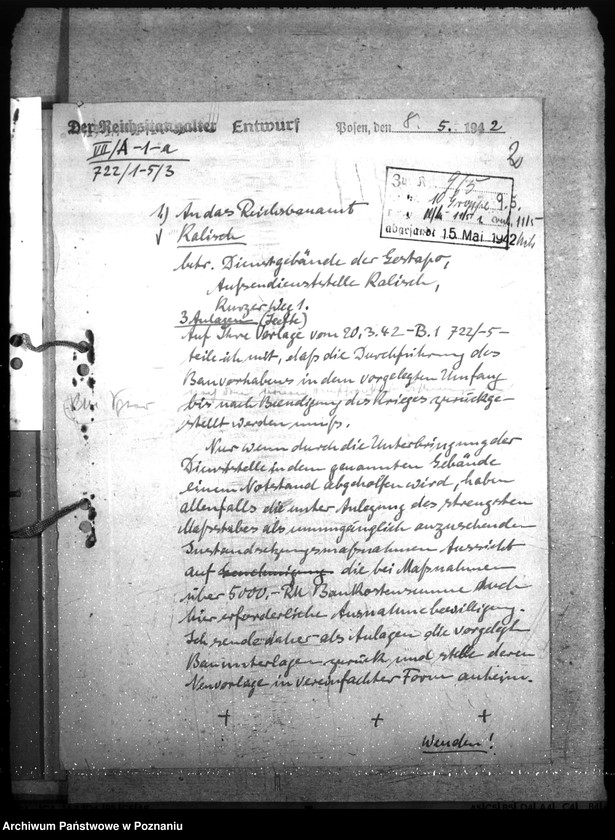 Der Reichsstatthalter Entwurf Posen, den 8. 5. 1942
VII/A-1-a
722/1-5/3
2
9/5
9.5.
11/5
abgesandt 15. Mai 1942
1) An das Reichsbauamt
Kalisch
betr. Dienstgebäude der Gestapo,
Außendienststelle Kalisch,
Kurzer Weg 1.
3 Anlagen (Hefte)
Auf Ihre Vorlage vom 20.3.42 - B.1 722/-5-
teile ich mit, daß die Durchführung des
Bauvorhabens in dem vorgelegten Umfang
bis nach Beendigung des Krieges zurückge-
stellt werden muß.
Nur wenn durch die Unterbringung der
Dienststelle in dem genannten Gebäude
einem Notstand abgeholfen wird, haben
allenfalls die unter Anlegung des strengsten
Maßstabes als unumgänglich anzusehenden
Instandsetzungsmaßnahmen Aussicht
auf Genehmigung die bei Maßnahmen
über 5000,- RM Baukostensumme
hier erforderliche Ausnahmebewilligung.
Ich sende daher als Anlagen die vorgelegten
Bauunterlagen zurück und stelle deren
Neuvorlage in vereinfachter Form anheim.
+ + +
Wenden!
Archiwum Państwowe w Poznaniu